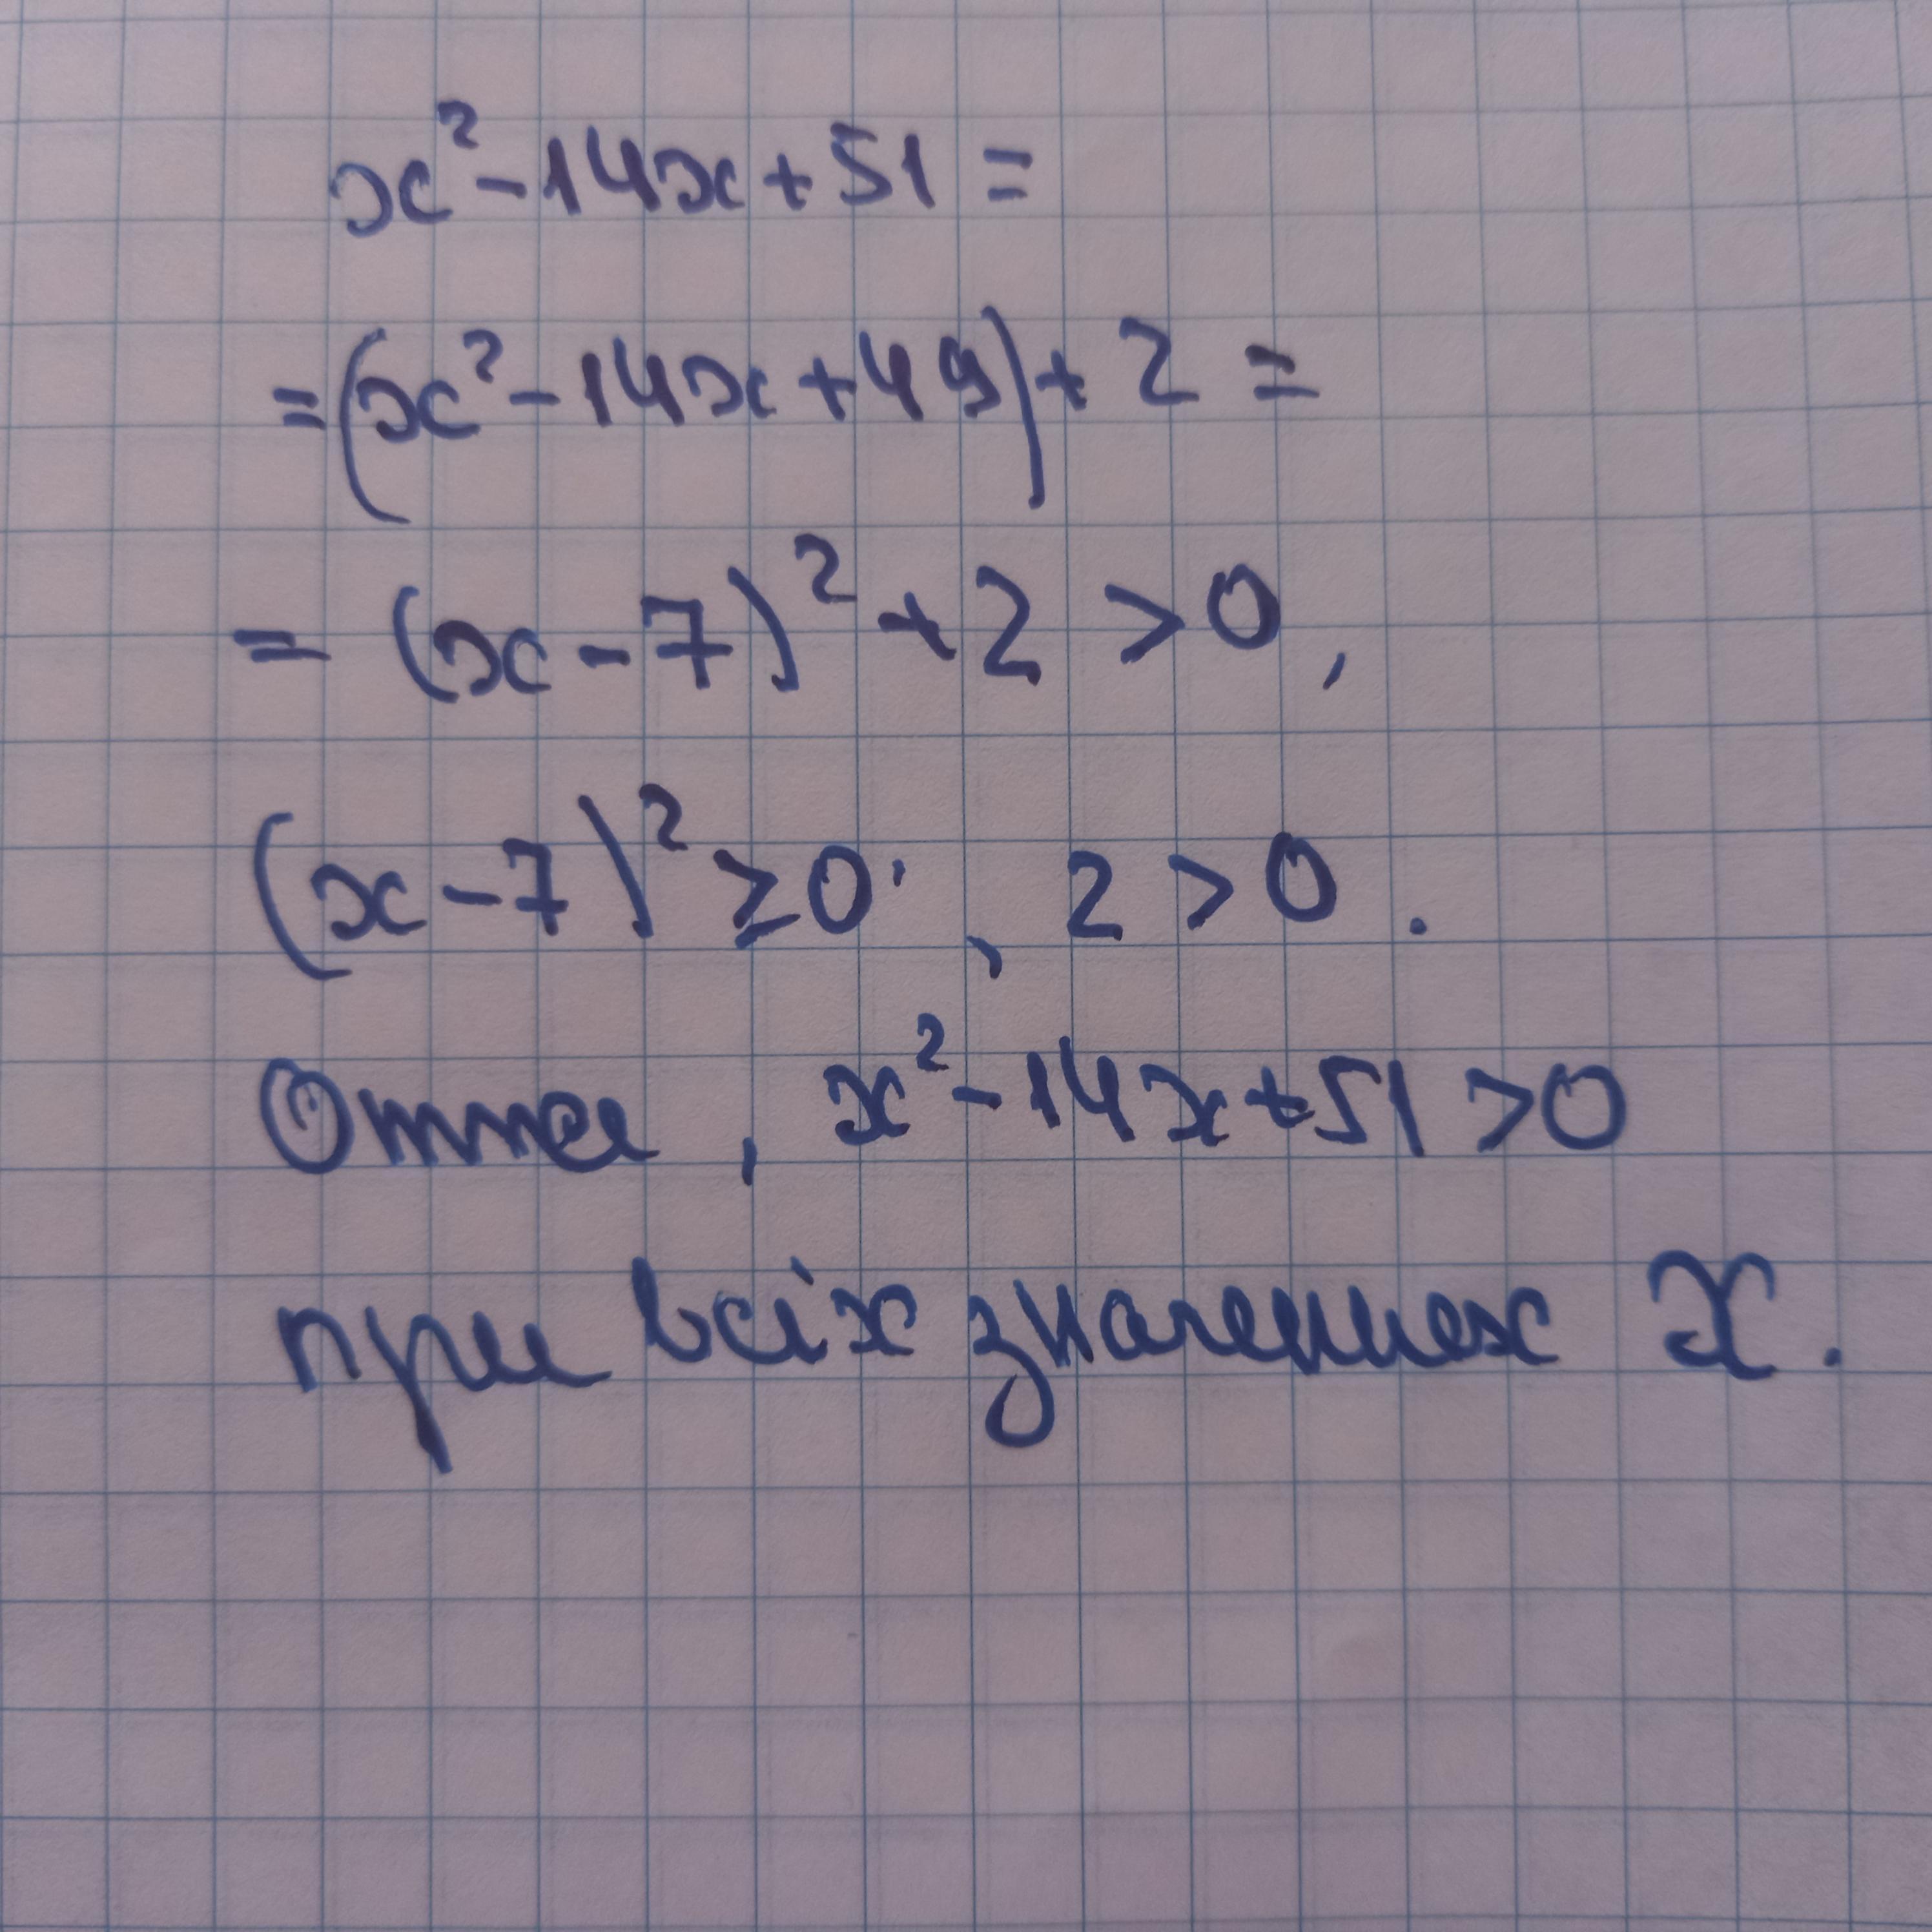 x² - 14x + 51 =
= (x² - 14x + 49) + 2 =
= (x - 7)² + 2 > 0,
(x - 7)² ≥ 0, 2 > 0.
Отже, x² - 14x + 51 > 0
при всіх значеннях x.